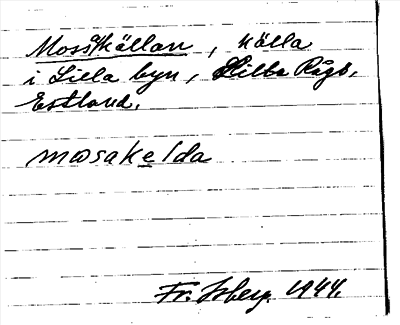 Mosskällan, källa
i Lilla byn, Lilla Rågö,
Estland.
mosakelda
Fr. Isberg. 1944.